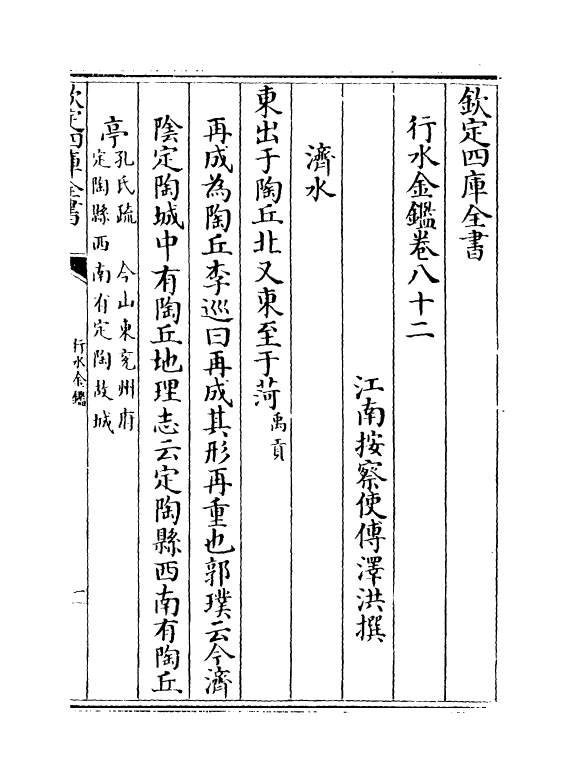 欽定四庫全書
行水金鑑卷八十二
江南按察使傅澤洪撰
濟水
東出于陶丘北又東至于菏禹貢
再成為陶丘李巡曰再成其形再重也郭璞云今濟
陰定陶城中有陶丘地理志云定陶縣西南有陶丘
亭孔氏疏 今山東兖州府
定陶縣西南有定陶故城
欽定四庫全書
行水金鑑
一